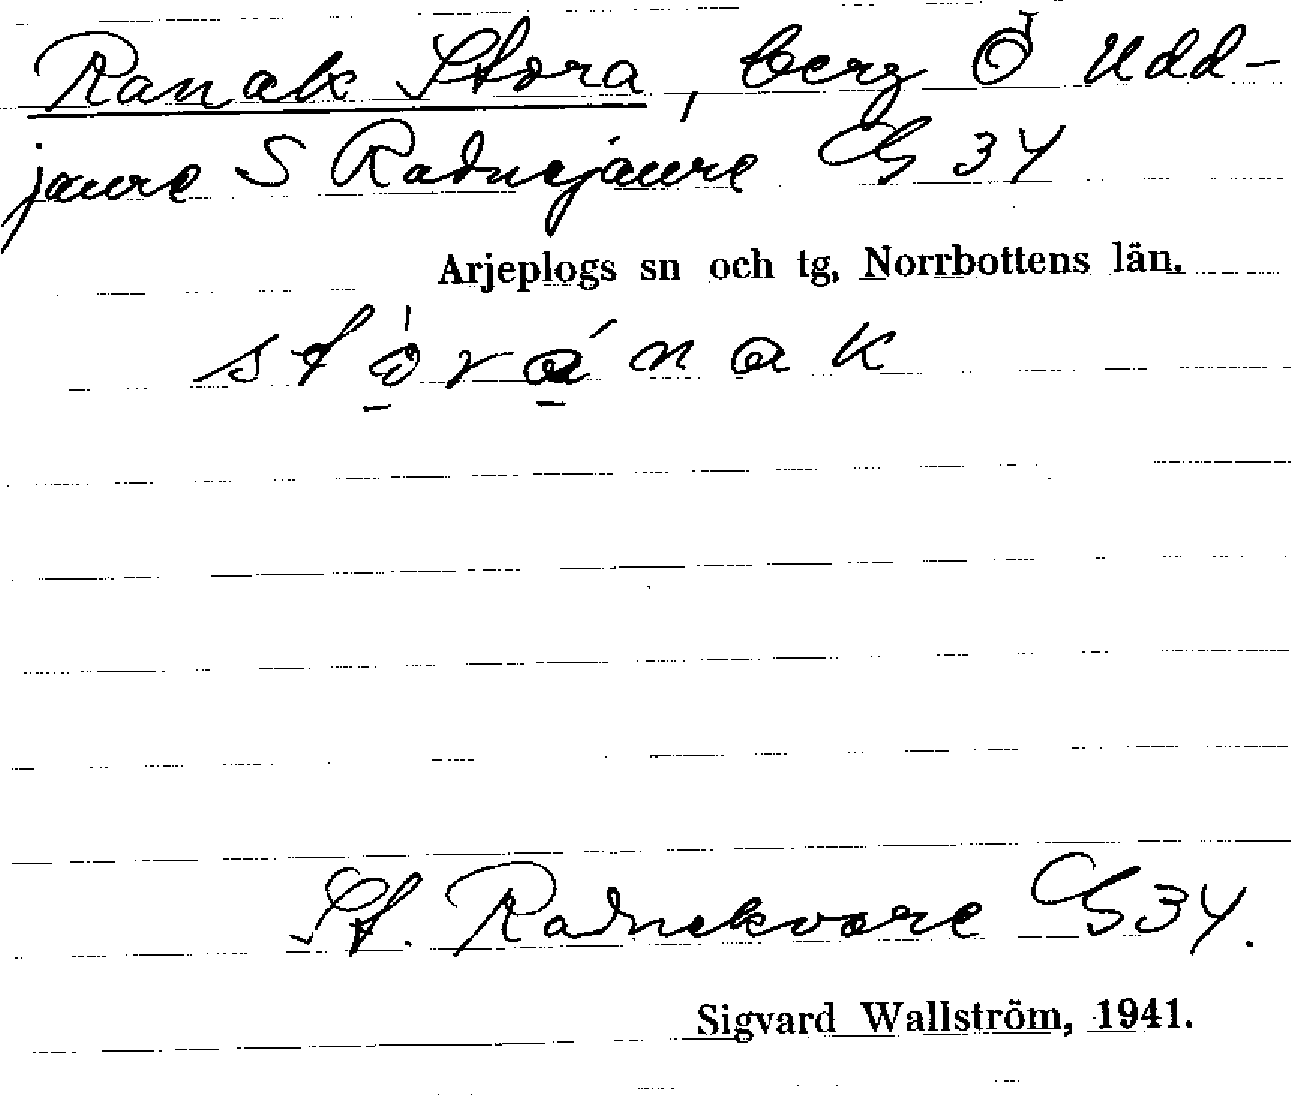 Ranak Stora, berg Ö Udd-
jaure S Radnejaure GS 34
Arjeplogs sn och tg, Norrbottens län.
stò̱rá̱nak
St. Radnekvare GS 34.
Sigvard Wallström, 1941.